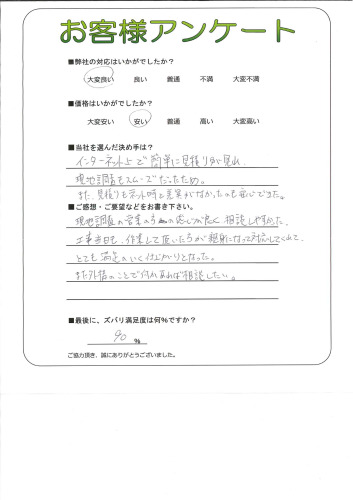 お客様アンケート
■弊社の対応はいかがでしたか?
大変良い 良い 普通 不満 大変不満
■価格はいかがでしたか?
大変安い 安い 普通 高い 大変高い
■当社を選んだ決め手は?
インターネット上で簡単に見積りが見れ
現地調査もスムーズだったため。
また、見積りもネット時と差異がなかったのも安心できた。
■ご感想・ご要望などをお書き下さい。
現地調査の営業の方の応じが良く相談しやすかった。
工事当日も、作業して頂いた方が親身になって対応してくれて、
とても満足のいく仕上がりとなった。
また外構のことで何かあれば相談したい。
■最後に、ズバリ満足度は何%ですか?
90 %
ご協力頂き、誠にありがとうございました。